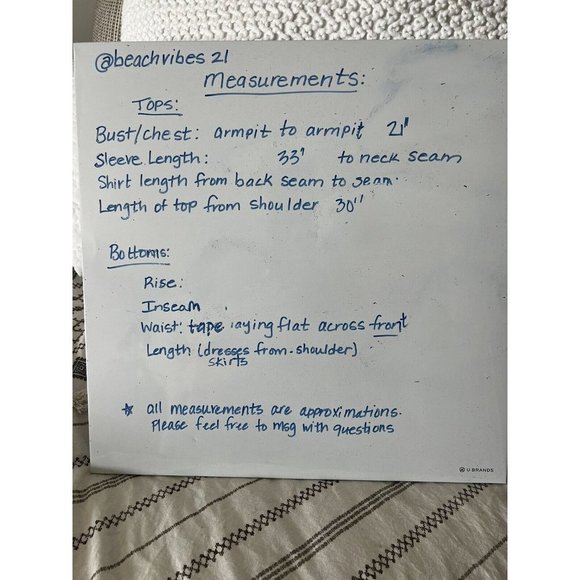 @beachvibes 21
Measurements:
TOPS:
Bust/chest: armpit to armpit 21"
Sleeve Length: 33" to neck seam
Shirt length from back seam to seam.
Length of top from shoulder 30"
Bottoms:
Rise:
Inseam
Waist: tape laying flat across front
Length (dresses from shoulder)
skirts
* all measurements are approximations.
Please feel free to msg with questions
U BRANDS